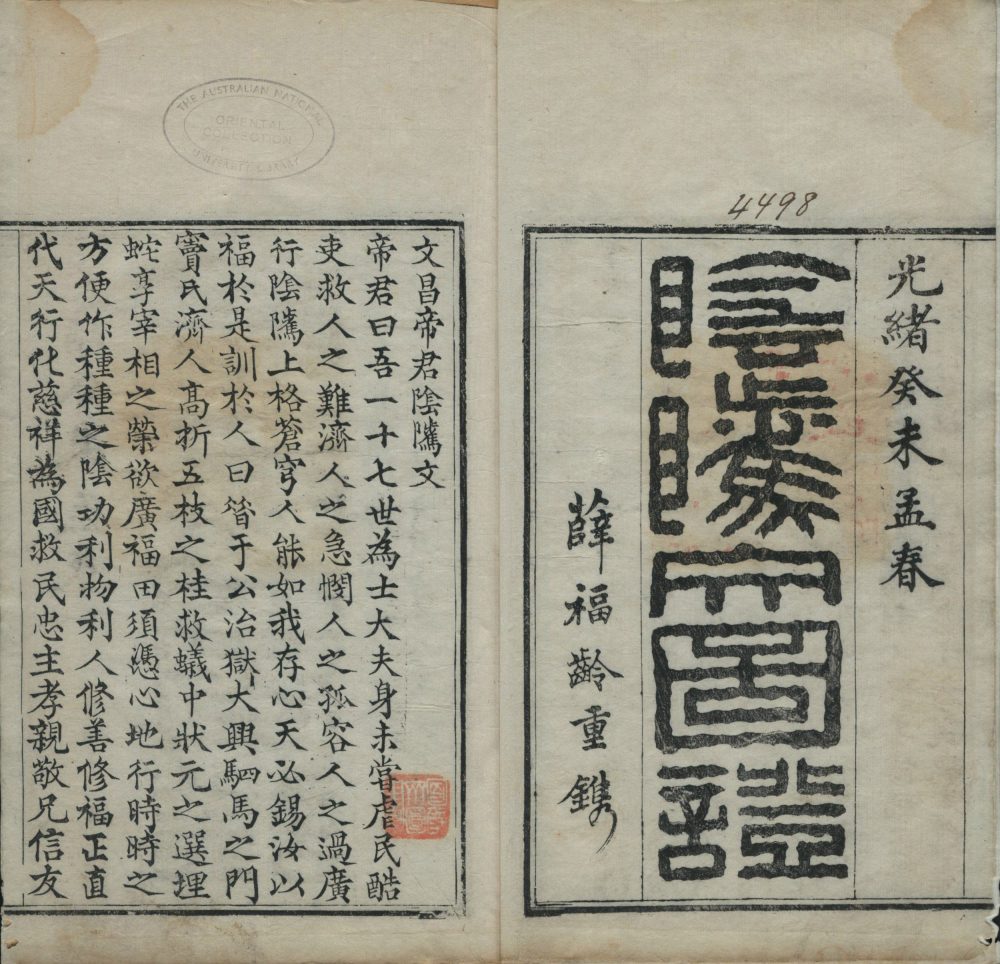 光緒癸未孟春
陰騭文圖證
薛福齡重鐫
4498
THE AUSTRALIAN NATIONAL
UNIVERSITY LIBRARY
ORIENTAL
COLLECTION
文昌帝君陰騭文
帝君曰吾一十七世為士大夫身未嘗虐民酷
吏救人之難濟人之急憫人之孤容人之過廣
行陰騭上格蒼穹人能如我存心天必錫汝以
福於是訓於人曰昔于公治獄大興駟馬之門
竇氏濟人高折五枝之桂救蟻中狀元之選埋
蛇享宰相之榮欲廣福田須憑心地行時時之
方便作種種之陰功利物利人修善修福正直
代天行化慈祥為國救民忠主孝親敬兄信友